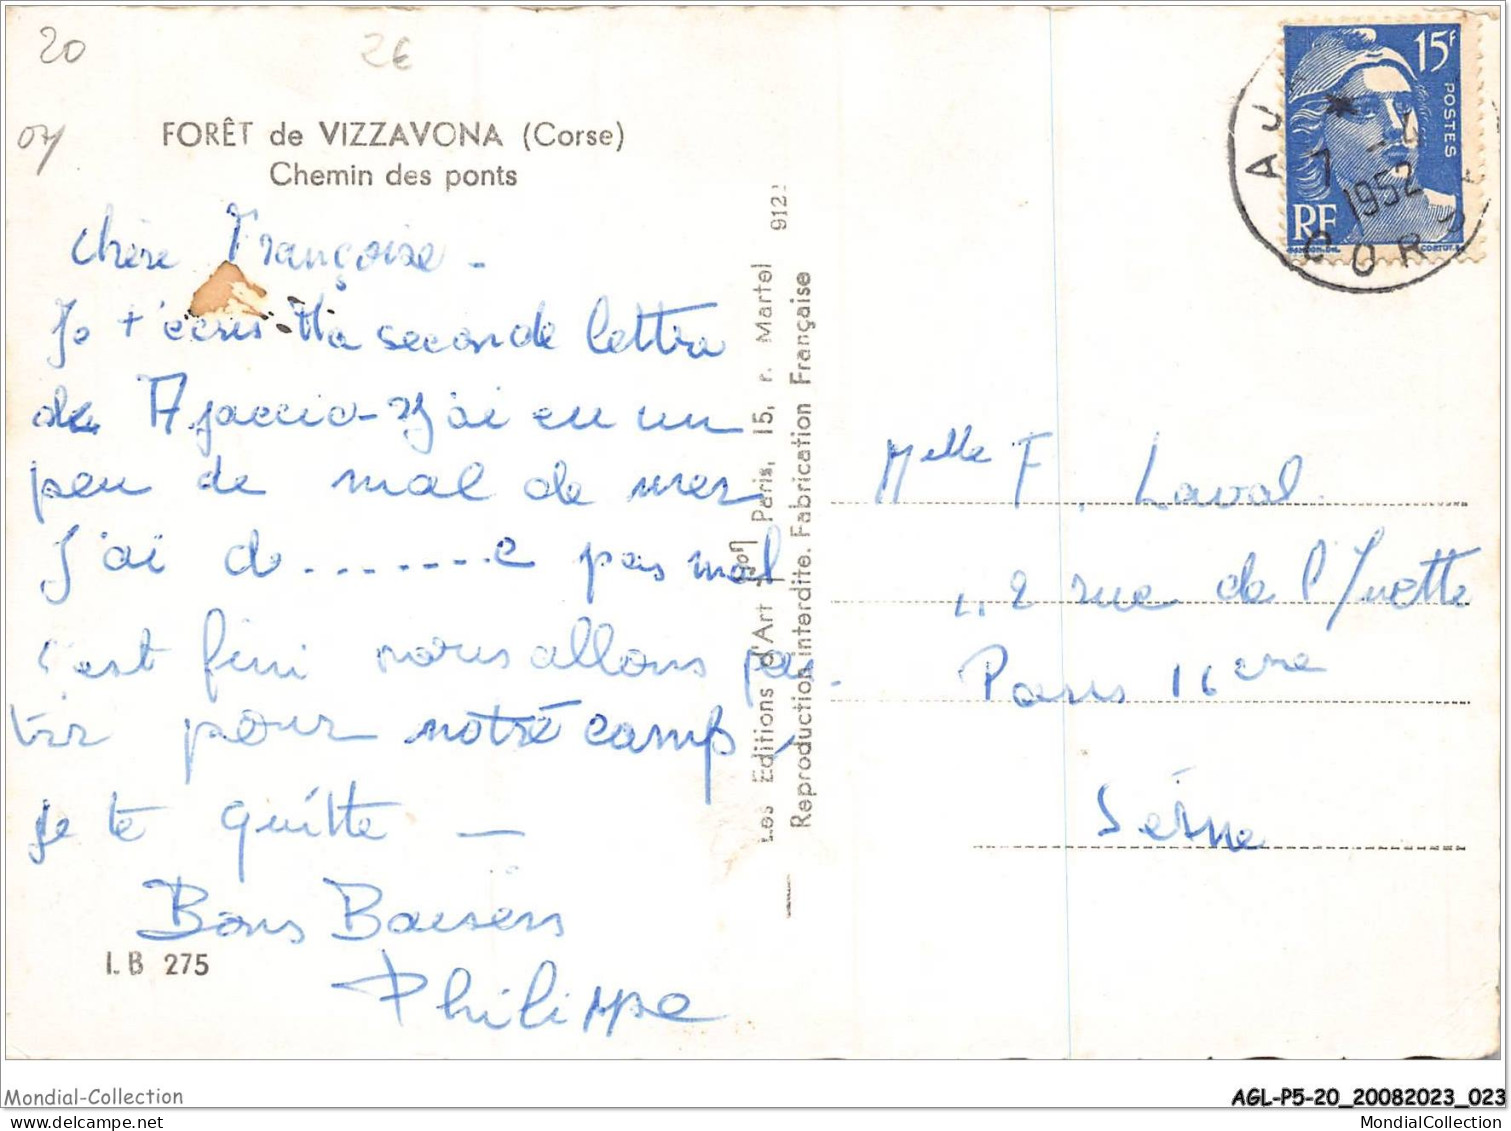 20
2€
FORÊT de VIZZAVONA (Corse)
Chemin des ponts
Chère Françoise -
Je t'écris ma seconde lettre
de Ajaccio - J'ai eu un
peu de mal de mer
J'ai d.......e pas mal
c'est fini nous allons par-
tir pour notre camp,
je te quitte —
Bons Baisers
Philippe
I. B 275
Les Editions d'Art Paris, 15, r. Martel 912
Reproduction interdite. Fabrication Française
15F
POSTES
RF
CORTOT
7
1952
CORSE
Melle F. Laval
2 rue de l'Yvette
Paris 16ème
Seine
Mondial-Collection
AGL-P5-20_20082023_023
MondialCollection.com